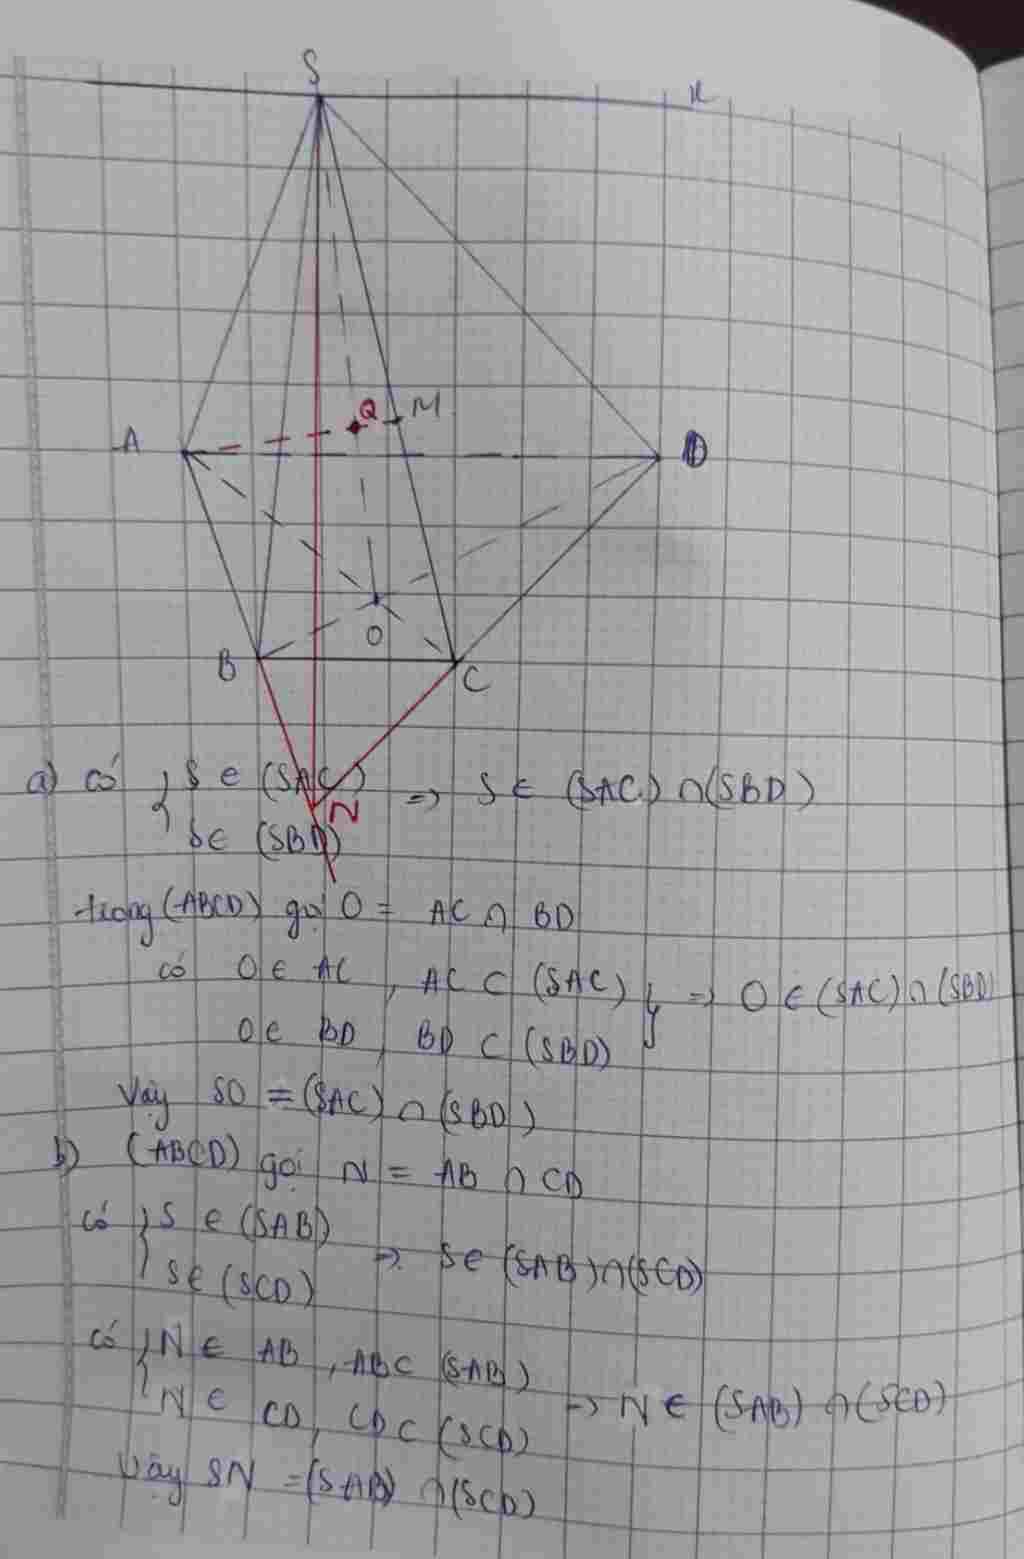 S
x
Q
M
A
D
O
B
C
N
a) có { S ∈ (SAC) => S ∈ (SAC) ∩ (SBD)
S ∈ (SBD)
trong (ABCD) gọi O = AC ∩ BD
có O ∈ AC, AC ⊂ (SAC) } => O ∈ (SAC) ∩ (SBD)
O ∈ BD, BD ⊂ (SBD)
Vậy SO = (SAC) ∩ (SBD)
b) (ABCD) gọi N = AB ∩ CD
có { S ∈ (SAB) => S ∈ (SAB) ∩ (SCD)
S ∈ (SCD)
có { N ∈ AB, AB ⊂ (SAB) => N ∈ (SAB) ∩ (SCD)
N ∈ CD, CD ⊂ (SCD)
Vậy SN = (SAB) ∩ (SCD)